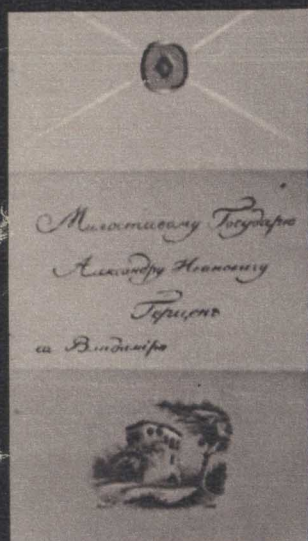 Милостивому Государю
Александру Ивановичу
Герценъ
Владимiръ